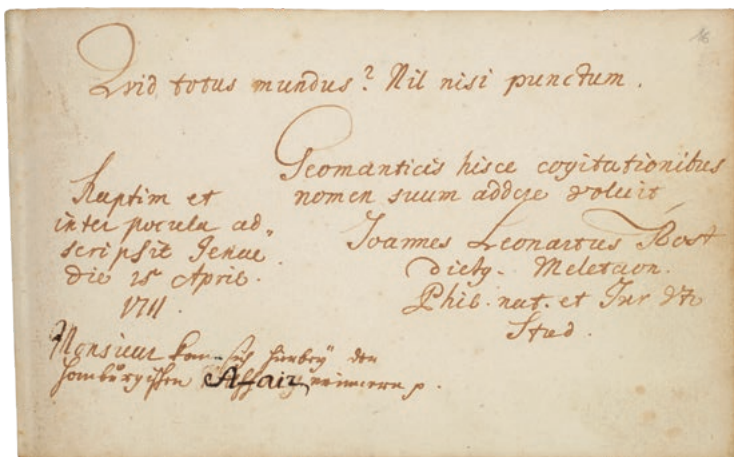 16
Qvid totus mundus? Nil nisi punctum.
Geomanticis hisce cogitationibus
nomen suum addere voluit
Joannes Leonartus Rost
dictq. Meletaon.
Phil. nat. et Jur
Stud.
Raptim et
inter pocula ad„
scripsit Jenae
die 15 April.
1711.
Monsieur kan sich hierbey der
homburgischen Affair erinnern p.